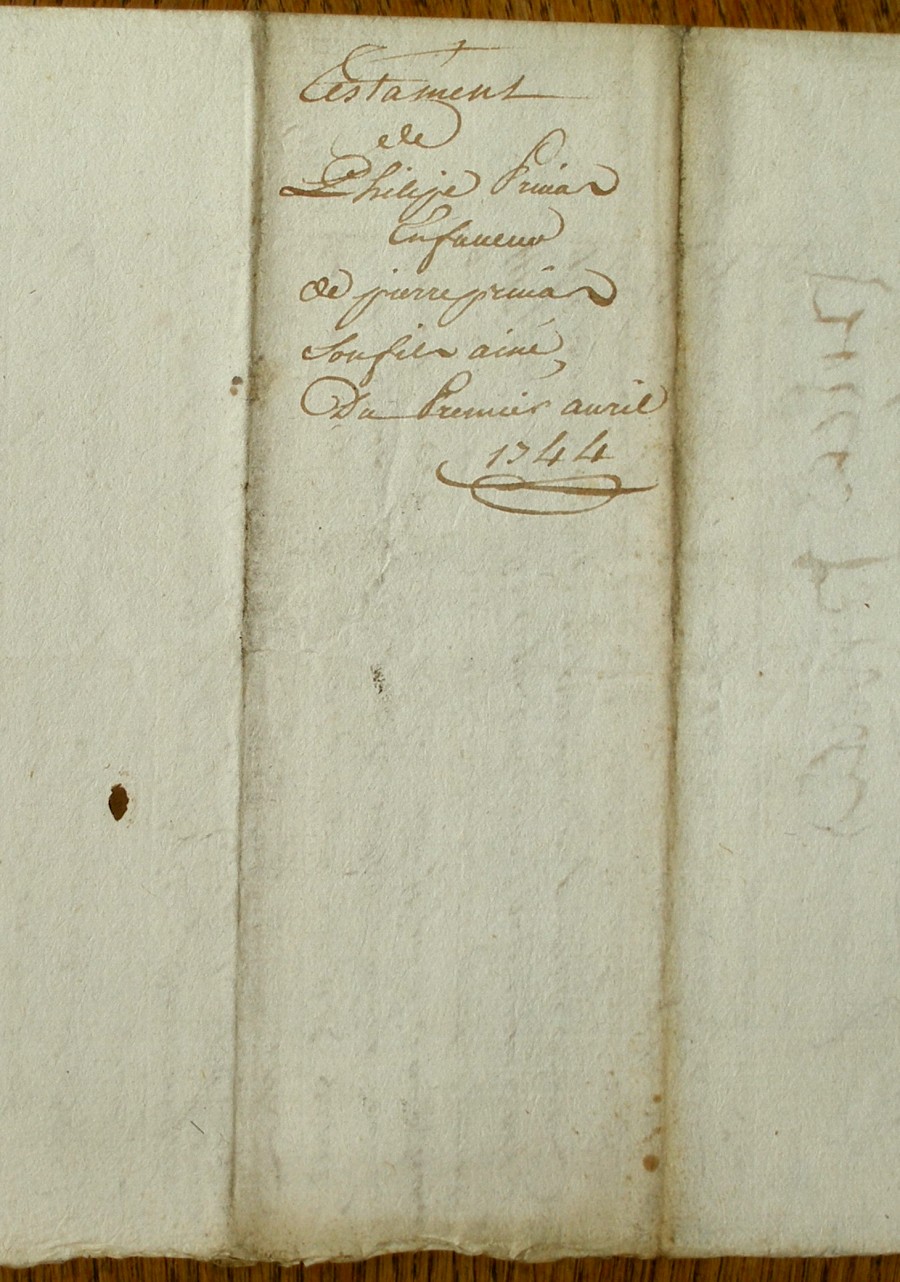 Testament
de
Philipe Privas
En faveur
de pierre privas
Son fils ainé
Du Premier avril
1744